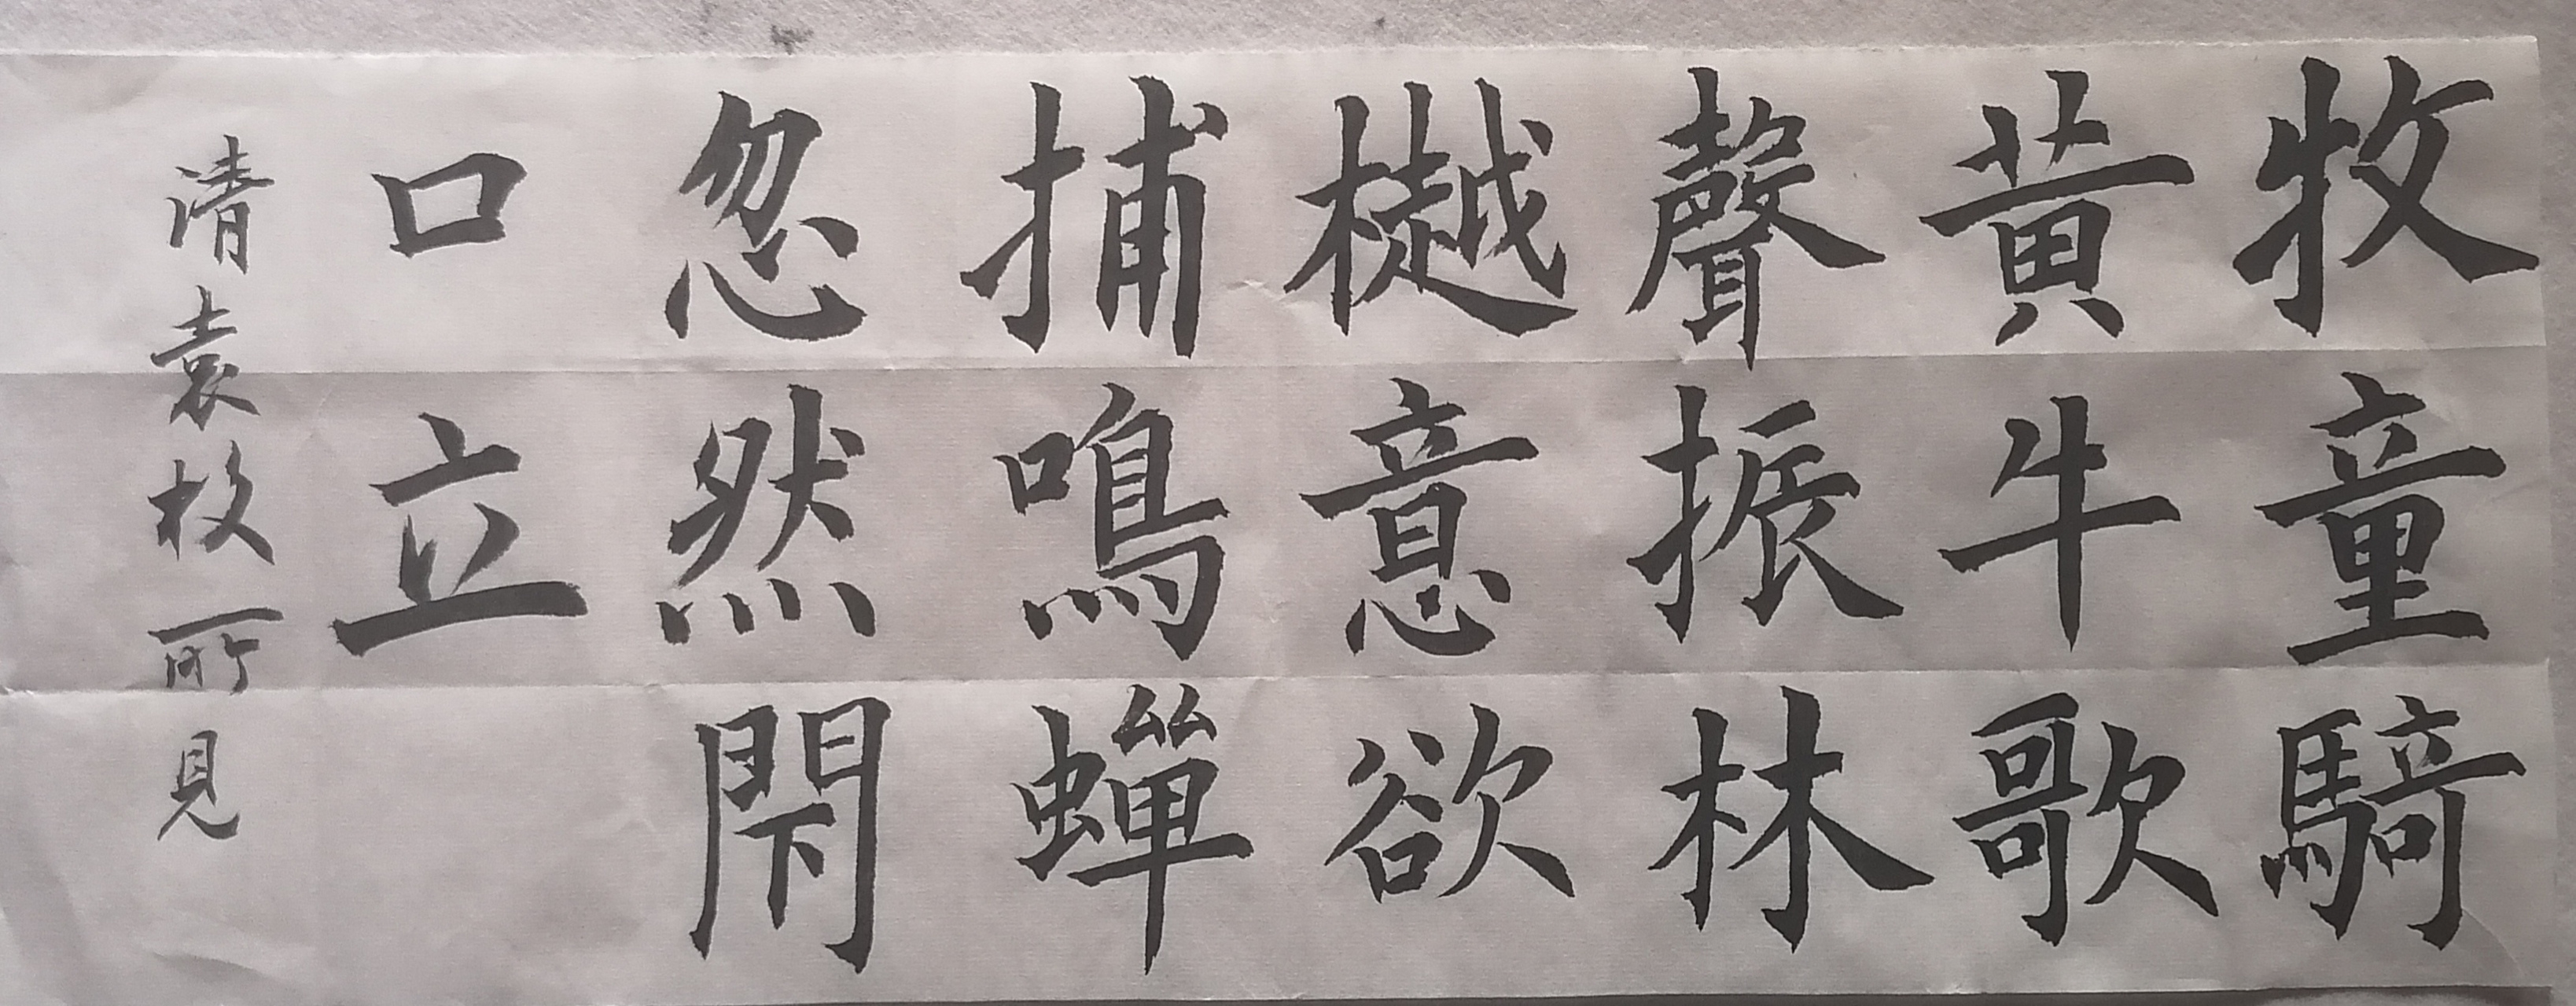 牧童騎
黄牛歌
聲振林
樾意欲
捕鳴蟬
忽然閇
口立
清袁枚所見